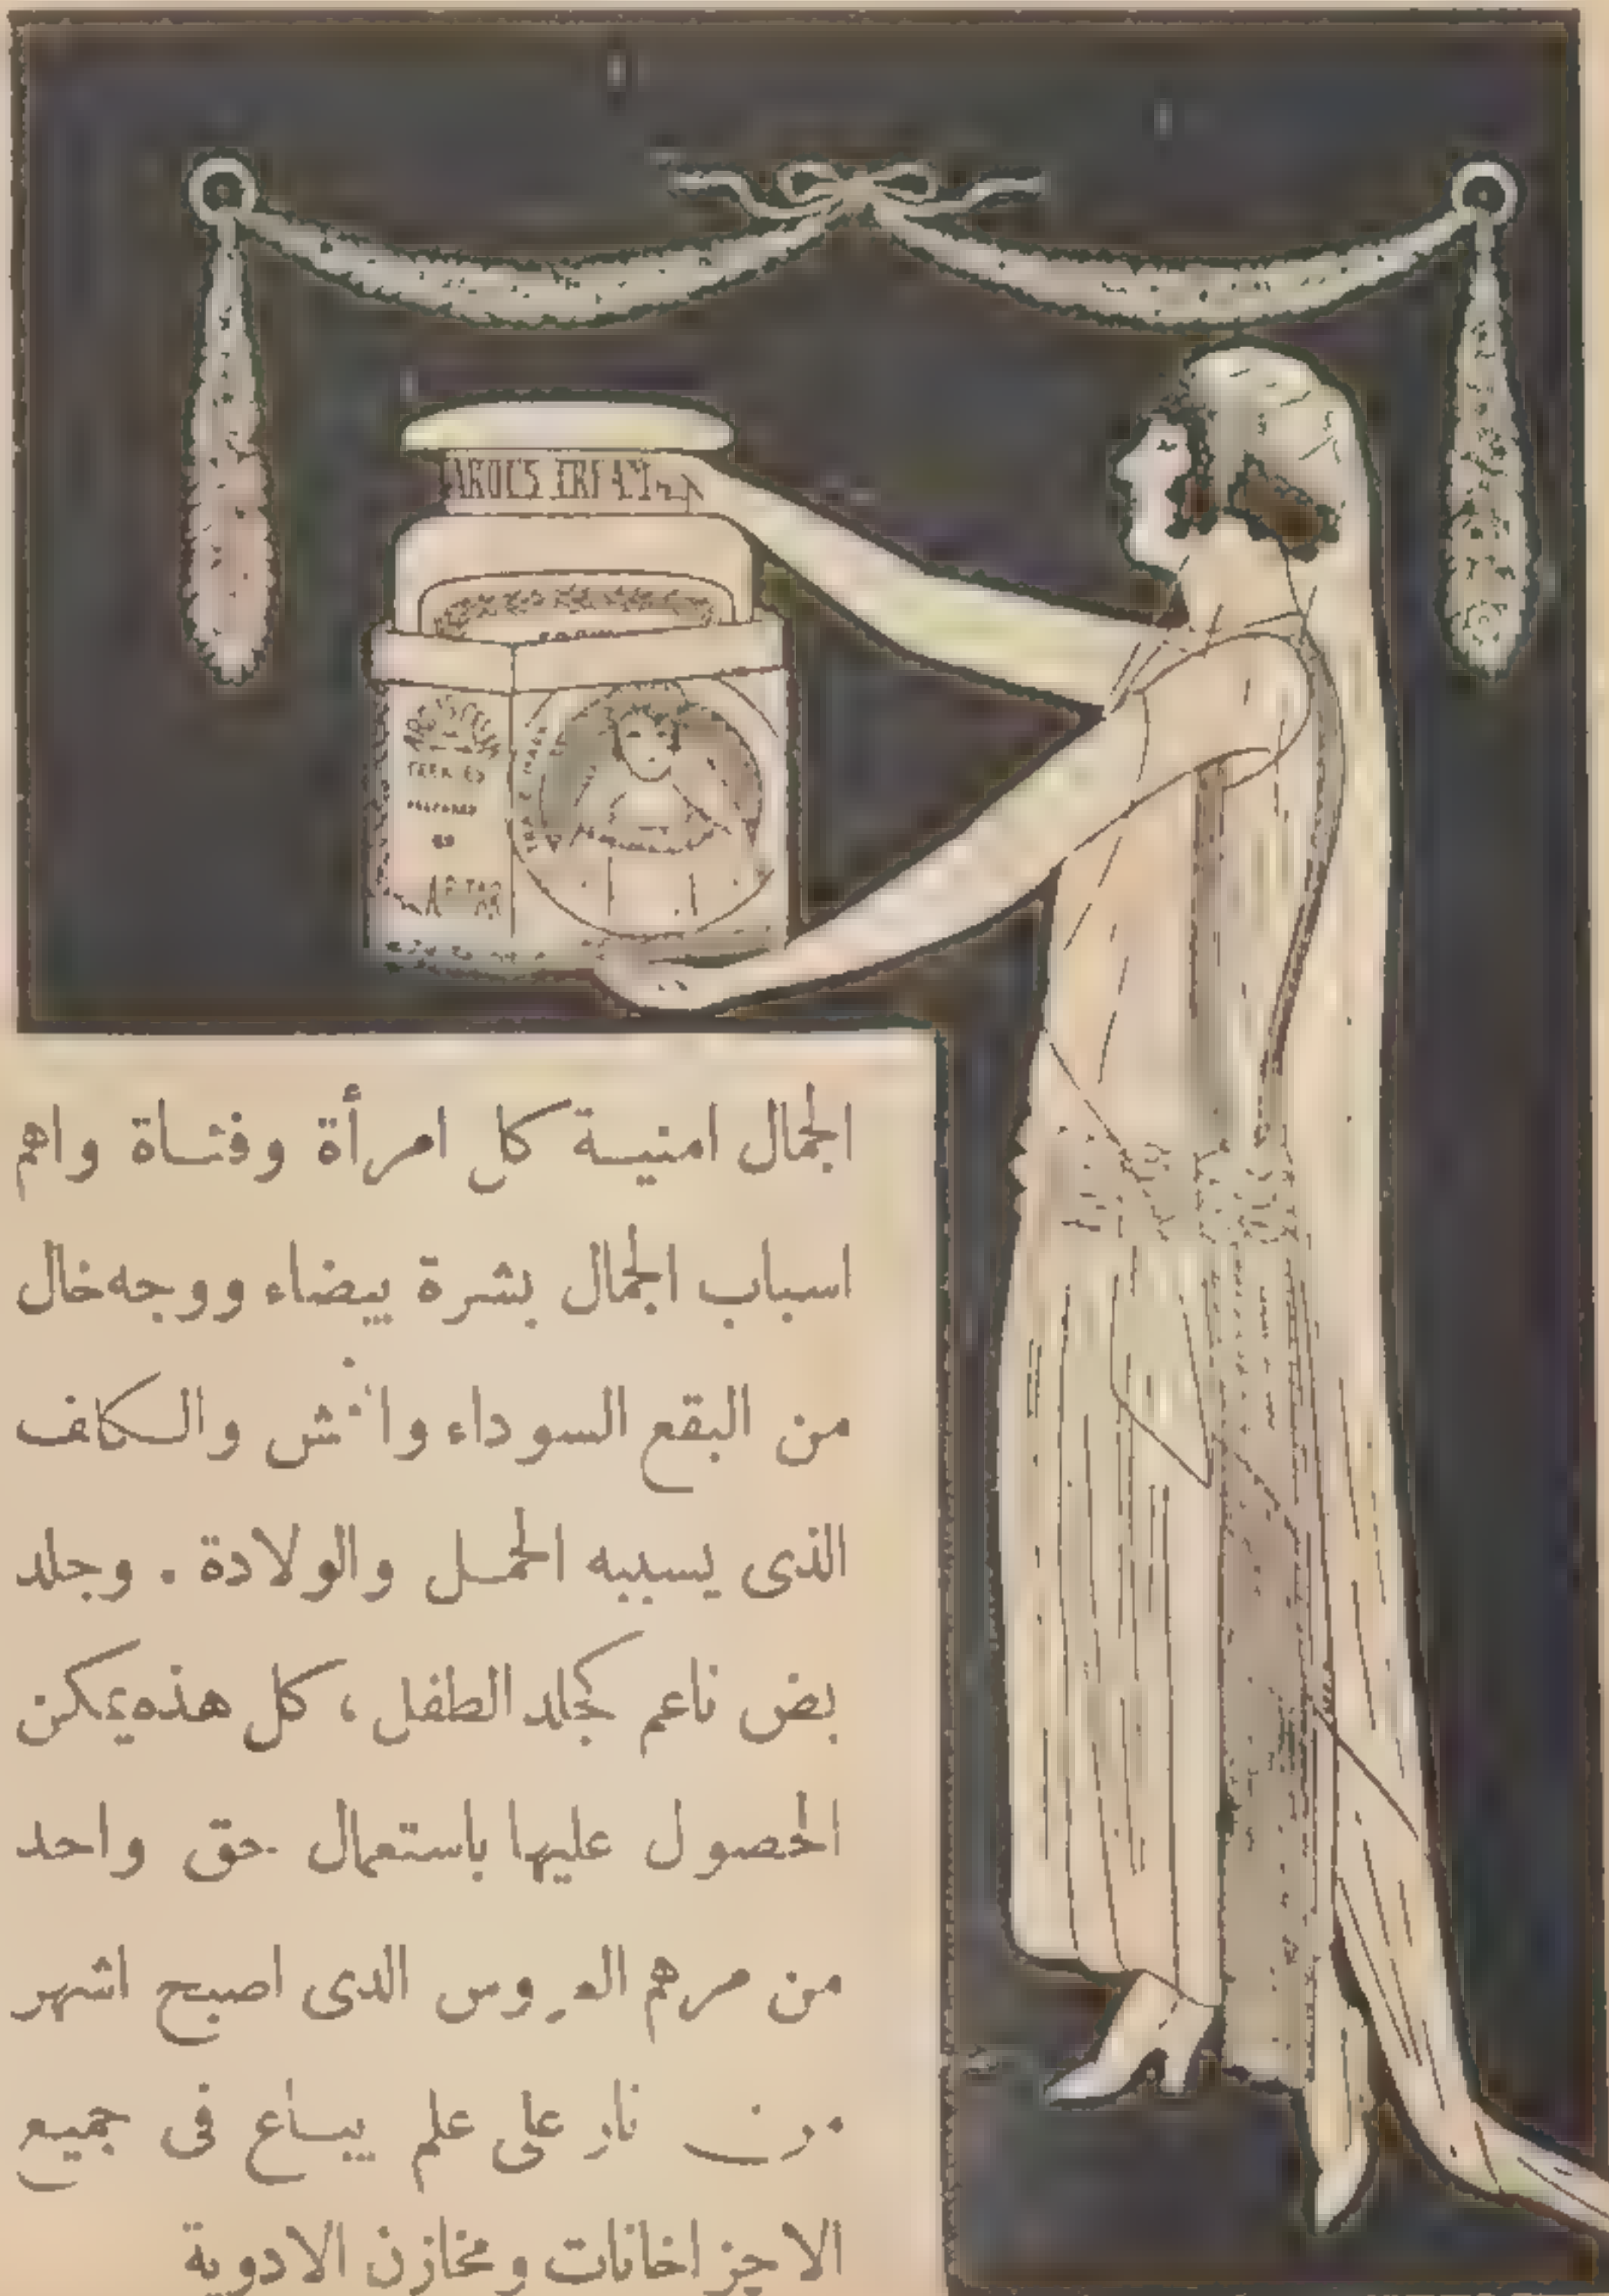 الجمال امنية كل امرأة وفتاة واهم
اسباب الجمال بشرة بيضاء ووجه خال
من البقع السوداء والكلف
الذى يسببه الحمل والولادة . وجلد
بض ناعم كجلد الطفل ، كل هذه يمكن
الحصول عليها باستعمال حق واحد
من مرهم العروس الذى اصبح اشهر
من نار على علم يباع فى جميع
الاجزاخانات ومخازن الادوية